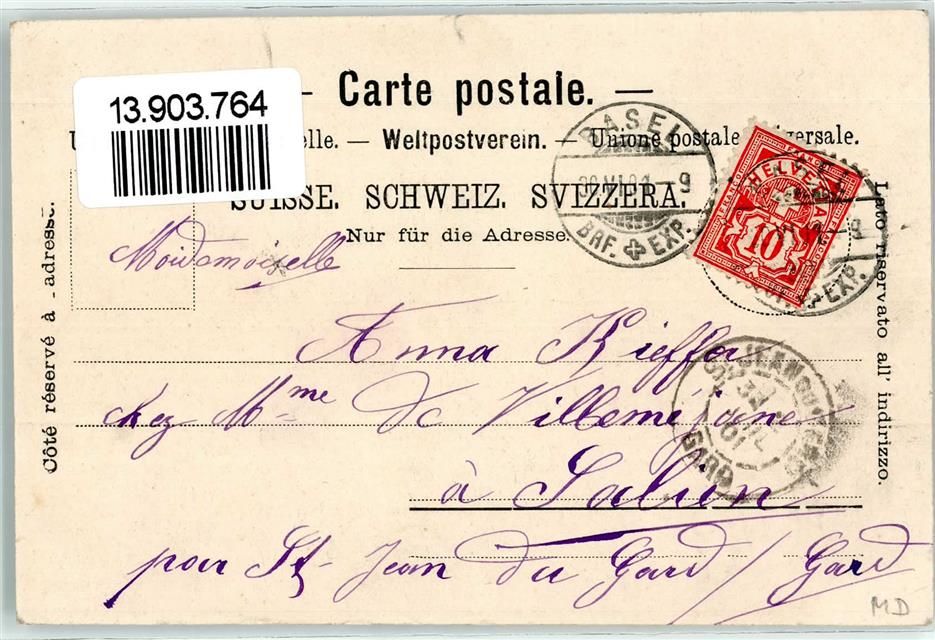 13.903.764
— Carte postale. —
elle. — Weltpostverein. — Unione postale universale.
SUISSE. SCHWEIZ. SVIZZERA.
Nur für die Adresse.
Côté réservé à l'adresse.
Lato riservato all' indirizzo.
BASEL
VI.01.-9
BRF. EXP.
HELVETIA
10
EXP.
Moidemoiselle
Anna Kieffer
chez Mme de Villeméjane
à Salien
pour St-Jean du Gard / Gard
ST JEAN DU GARD
01
GARD
MD